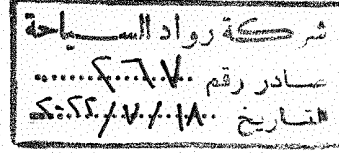 شركة رواد السياحة
صادر رقم ٢٦٧
التاريخ ١٨/٧/٢٠٢٢